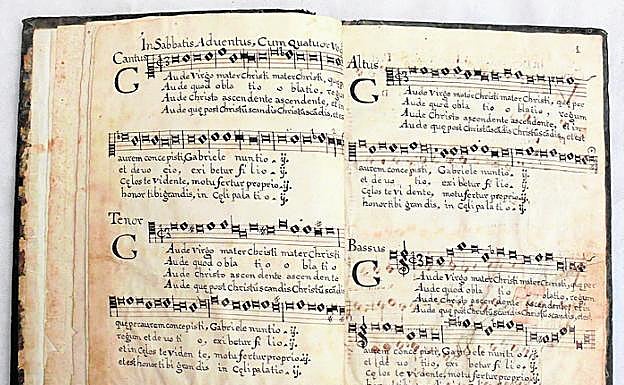 In Sabbatis Adventus, Cum Quatuor
Cantus
GAude Virgo mater Christi mater Christi, que
Aude quod obla tio o blatio, regum
Aude Christo ascendente ascendente, et in
Aude que post Christū scandis Christū scādis, et
aurem concepisti, Gabriele nuntio - ij.
et de vo cio, exi betur fi lio -
Cęlos te vidente, motu fertur proprio. ij.
honor tibi grandis, in Cęli pala ti o - ij.
Tenor
GAude Virgo mater Christi mater Christi
Aude quod obla ti o o bla tio
Aude Christo ascen dente ascendente
Aude que post Christū scandis Christū scādis
que per aurem concepisti, Gabriele nuntio - ij.
regum et de vo ti o, exi betur fi lio -
et in Cęlos te viden te, motu fertur proprio. ij.
et est honor tibi grādis in Cęli palatio - ij.
1
Altus.
GAude Virgo mater Christi mater Christi, que per
Aude quod obla tio o blatio, regum
Aude Christo ascendente ascendente, et in
Aude que post Christū scandis Christū scādis, et est
aurem concepisti, Gabriele nuntio - ij.
et de vo tio, exi betur fi lio -
Cęlos te vi dente, motu fertur proprio. ij.
honor tibi grandis, in Cęli pala ti o - ij.
Bassus
GAude Virgo mater Christi mater Christi, que per
Aude quod obla oblatio, regum
Aude Christo ascen dente ascendente, et in
Aude que post Christū scandis Christū scādis, et est
aurem concepisti, Gabriele nuntio - ij.
et de vo ti o, exi betur fi lio -
Cęlos te vidente, motu fertur proprio. ij.
honor tibi grandis, in Cęli pala tio - ij.